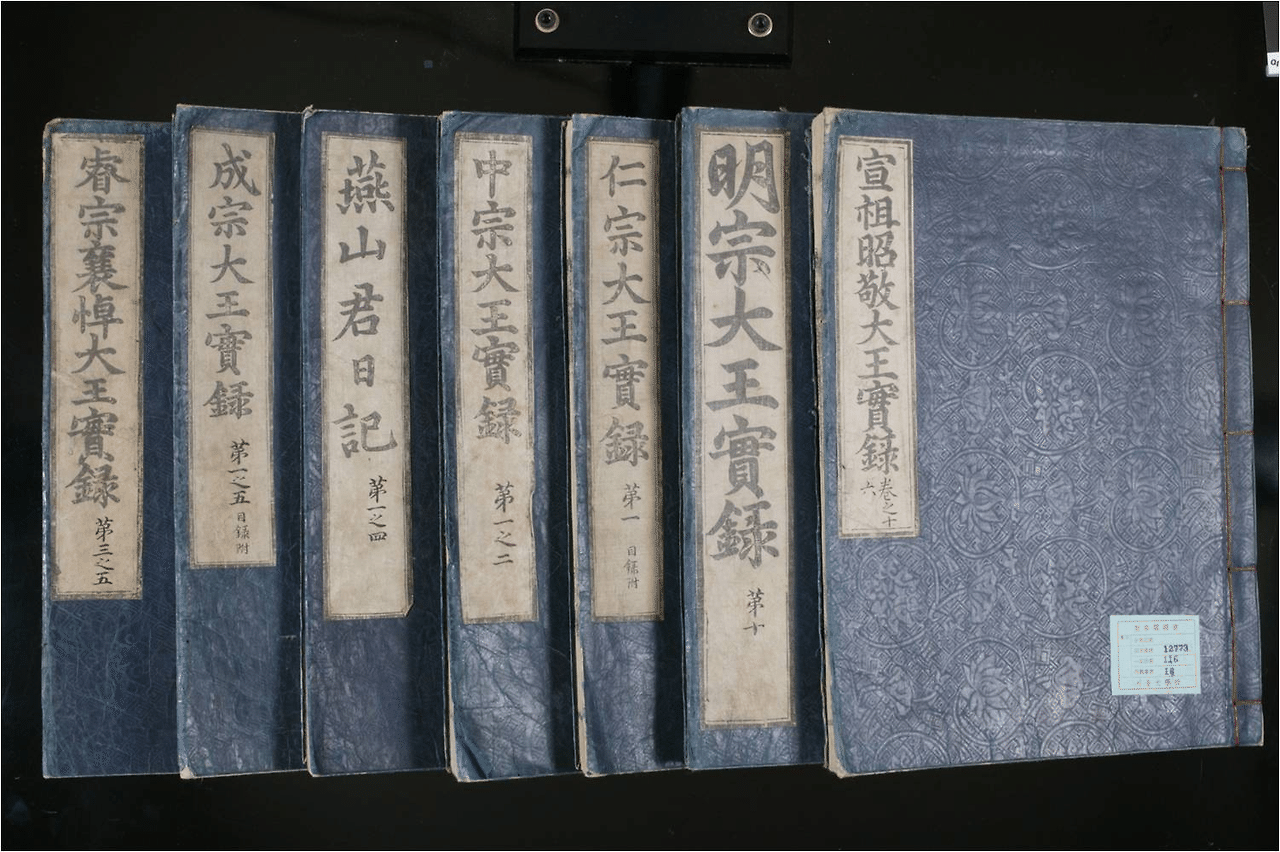 睿宗襄悼大王實録 第三之五
成宗大王實録 第一之五 目録附
燕山君日記 第一之四
中宗大王實録 第一之二
仁宗大王實録 第一 目録附
明宗大王實録 第十
宣祖昭敬大王實録 卷之十六
12773
116